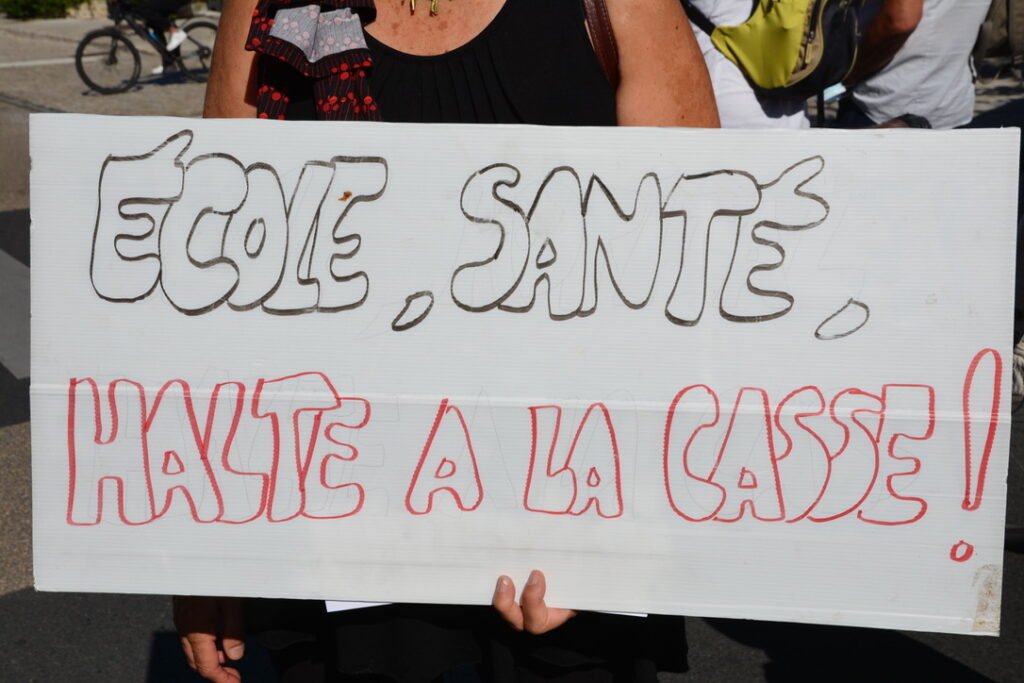 ÉCOLE, SANTÉ,
HALTE A LA CASSE!